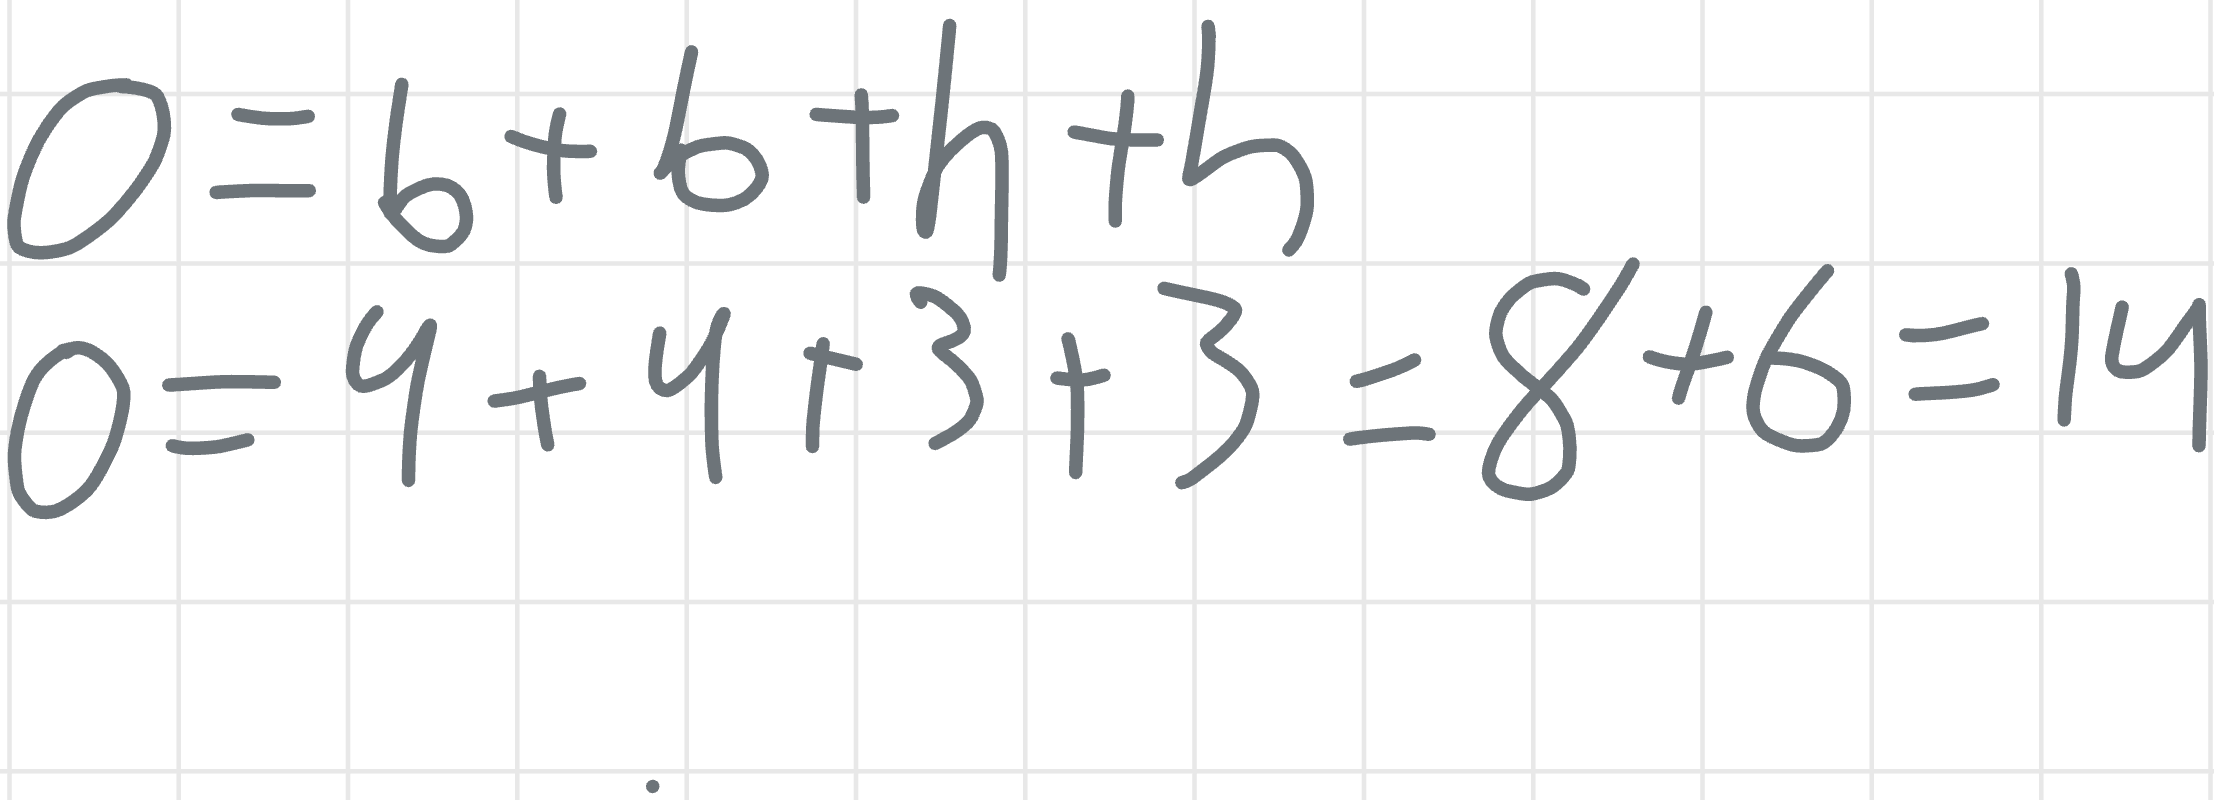 O = b + b + h + h
O = 4 + 4 + 3 + 3 = 8 + 6 = 14